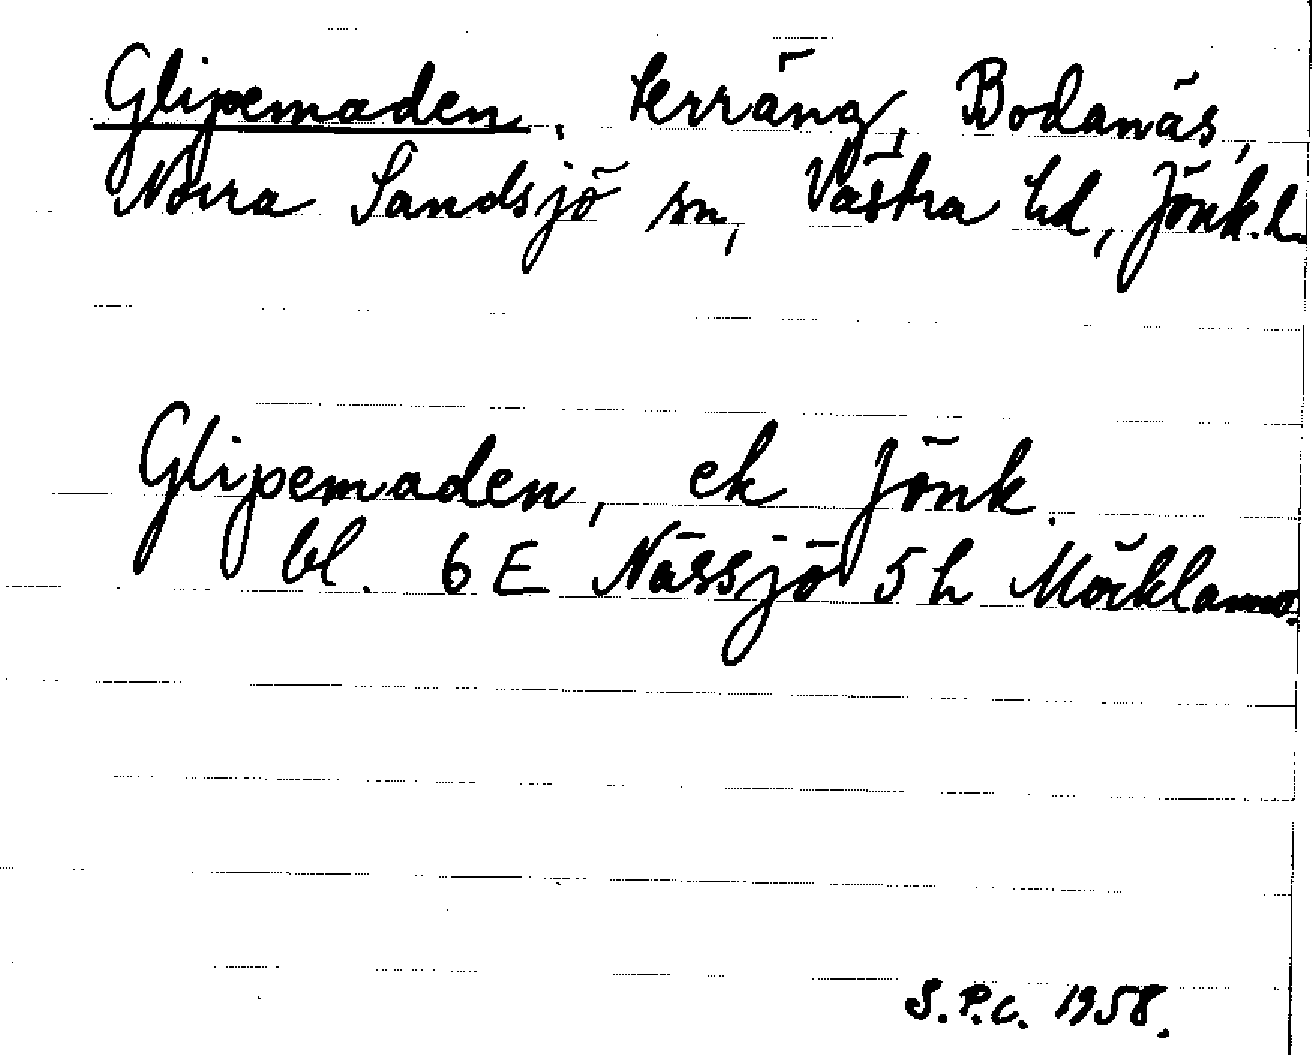 Glipemaden, terräng, Bodanäs,
Norra Sandsjö sn, Västra hd, Jönk.l.
Glipemaden, ek Jönk.
bl. 6 E Nässjö 5 h Möcklamo.
S.P.C. 1958.